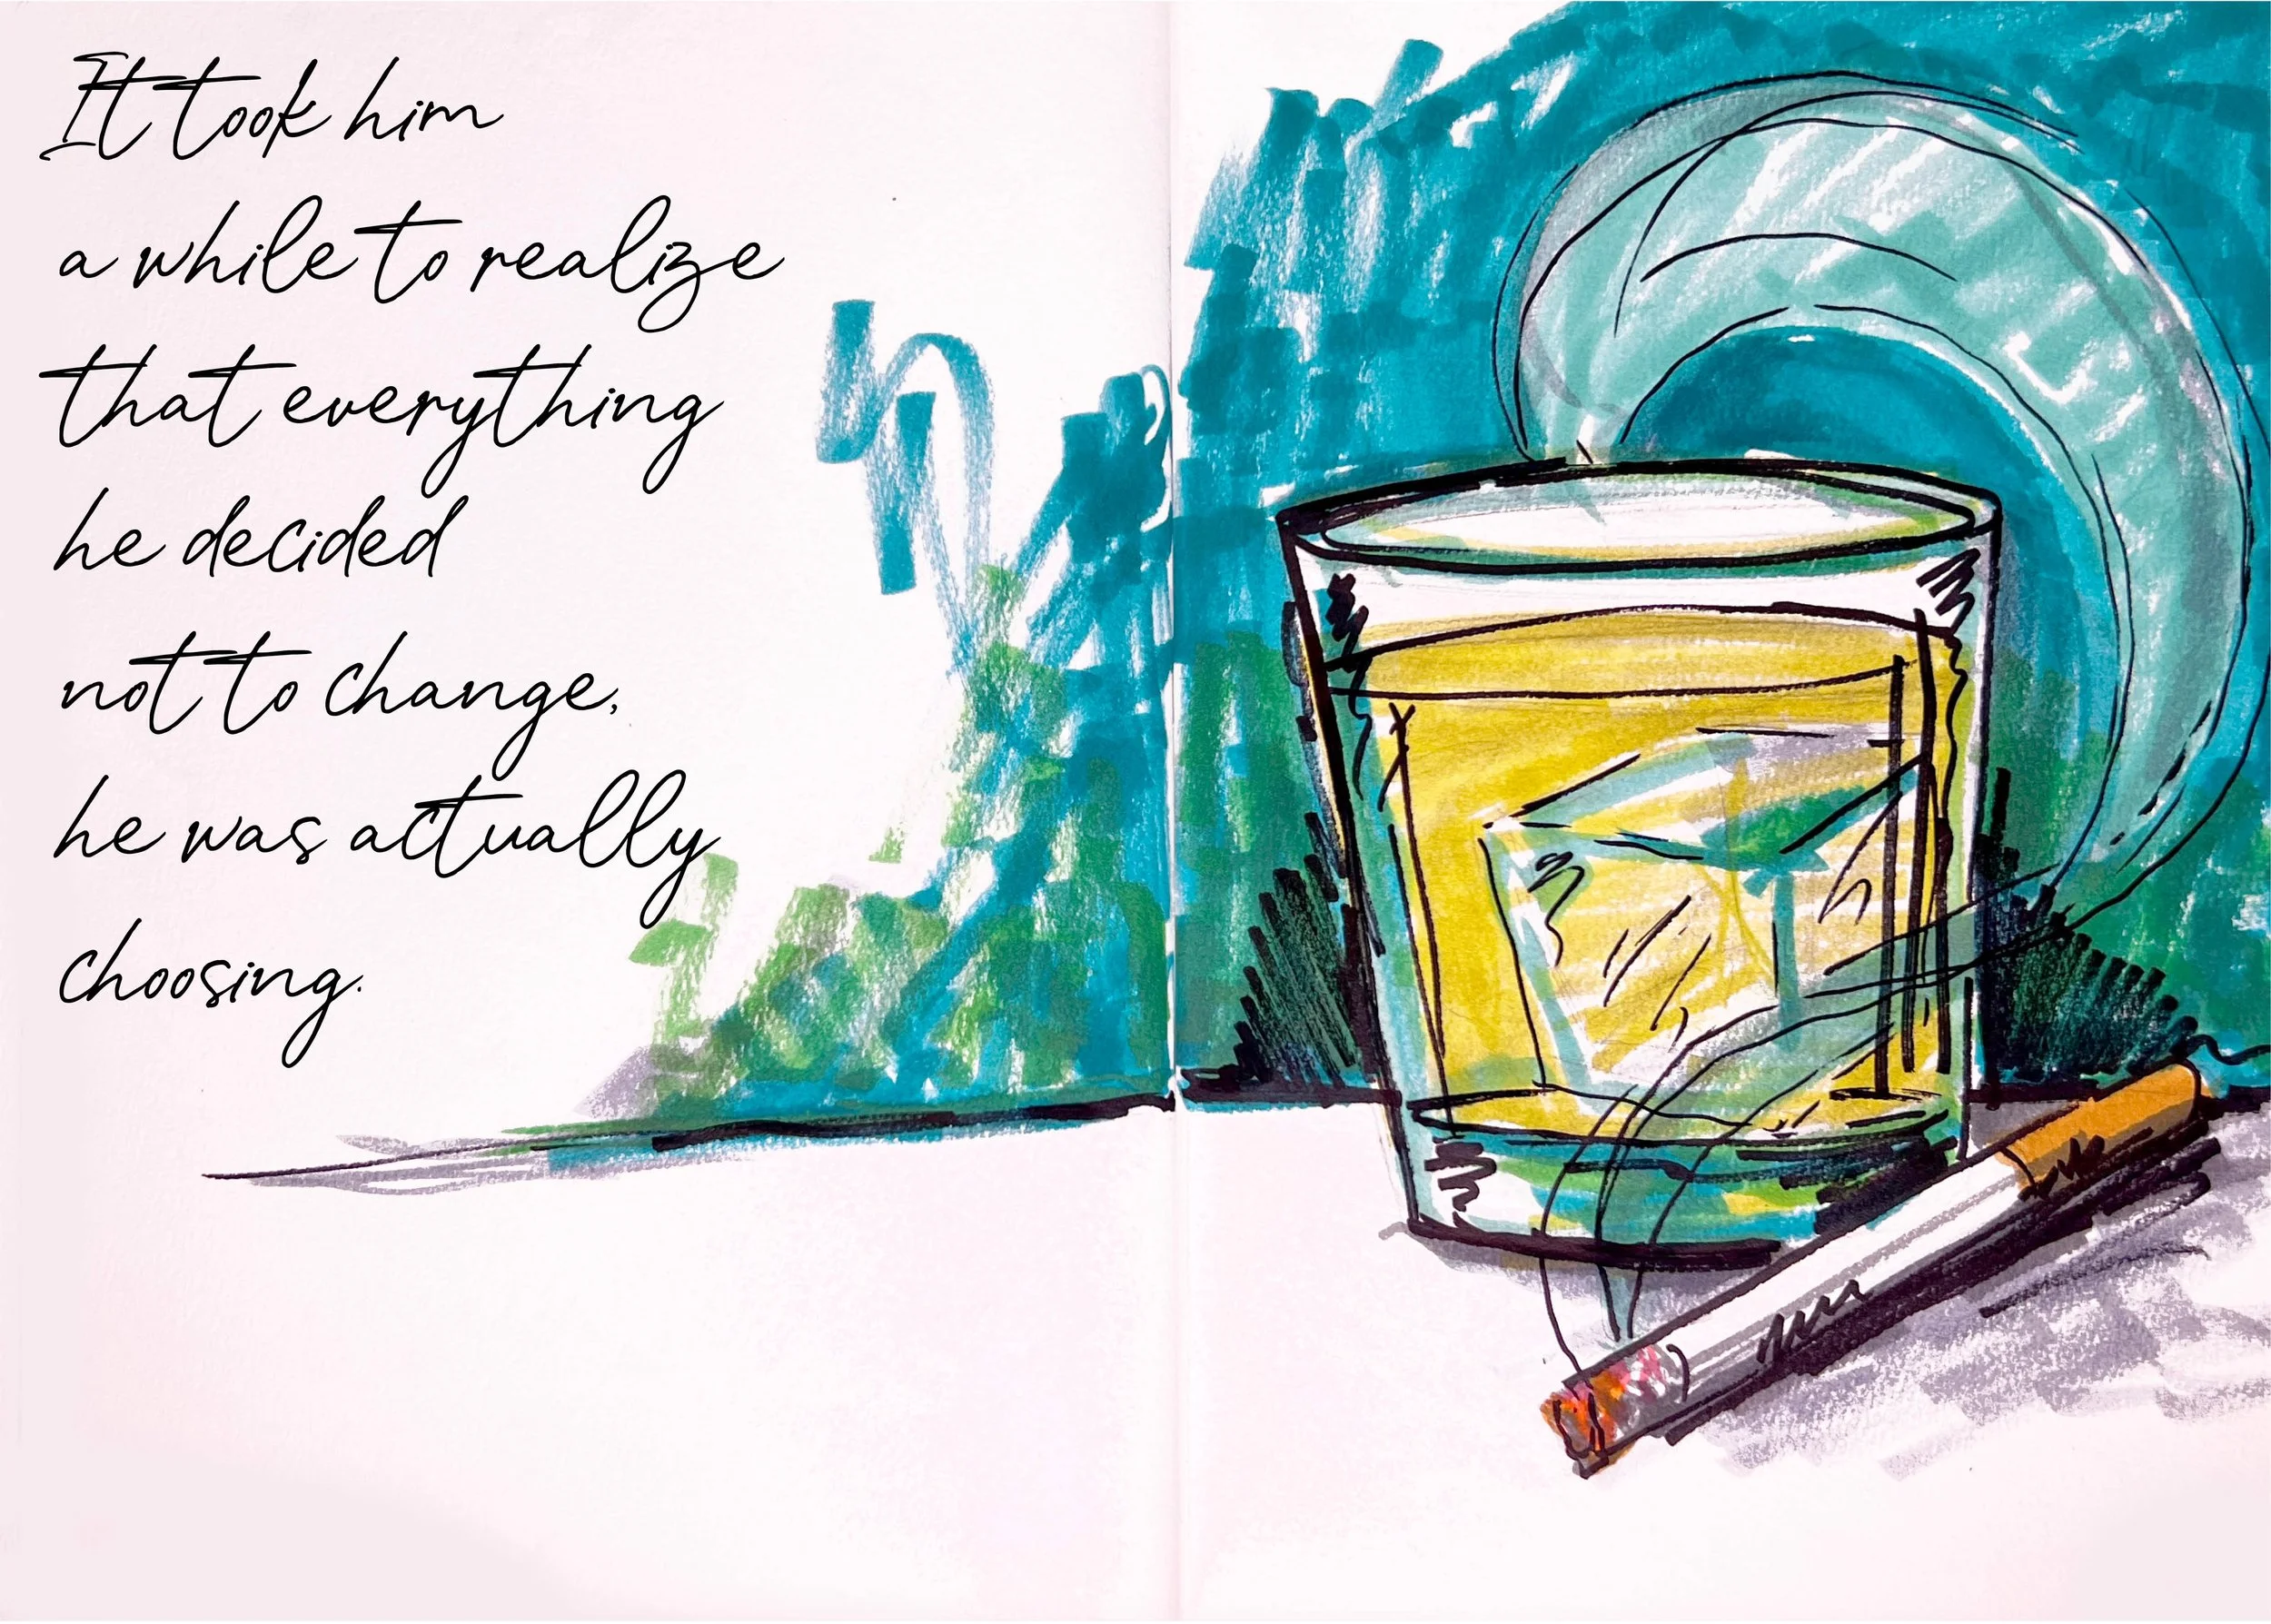 It took him
a while to realize
that everything
he decided
not to change,
he was actually
choosing.